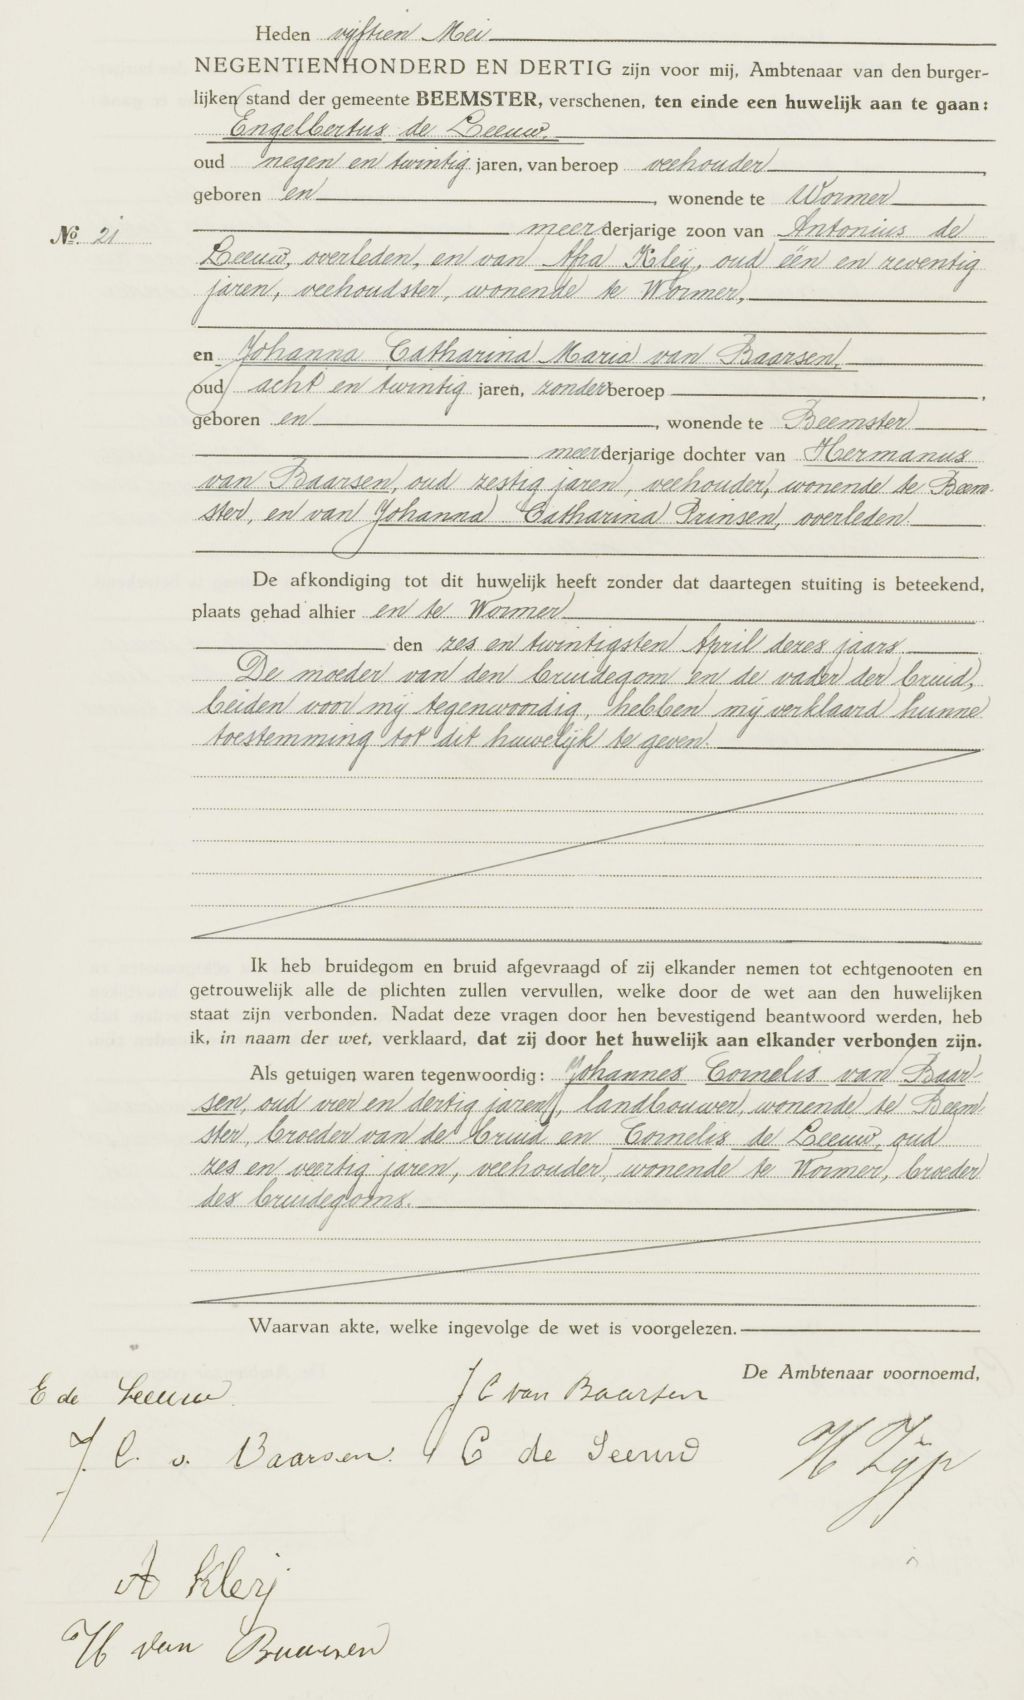 Heden vijftien Mei
NEGENTIENHONDERD EN DERTIG zijn voor mij, Ambtenaar van den burger-
lijken stand der gemeente BEEMSTER, verschenen, ten einde een huwelijk aan te gaan:
Engelbertus de Leeuw,
oud negen en twintig jaren, van beroep veehouder,
geboren en, wonende te Wormer
No. 21 meerderjarige zoon van Antonius de
Leeuw, overleden, en van Afra Kleij, oud één en zeventig
jaren, veehoudster, wonende te Wormer,
en Johanna Catharina Maria van Baarsen,
oud acht en twintig jaren, zonder beroep,
geboren en, wonende te Beemster
meerderjarige dochter van Hermanus
van Baarsen, oud zestig jaren, veehouder, wonende te Beem-
ster, en van Johanna Catharina Prinsen, overleden.
De afkondiging tot dit huwelijk heeft zonder dat daartegen stuiting is beteekend,
plaats gehad alhier en te Wormer
den zes en twintigsten April dezes jaars.
De moeder van den bruidegom en de vader der bruid,
beiden voor mij tegenwoordig, hebben mij verklaard hunne
toestemming tot dit huwelijk te geven.
Ik heb bruidegom en bruid afgevraagd of zij elkander nemen tot echtgenooten en
getrouwelijk alle de plichten zullen vervullen, welke door de wet aan den huwelijken
staat zijn verbonden. Nadat deze vragen door hen bevestigend beantwoord werden, heb
ik, in naam der wet, verklaard, dat zij door het huwelijk aan elkander verbonden zijn.
Als getuigen waren tegenwoordig: Johannes Cornelis van Baar-
sen, oud vier en dertig jaren, landbouwer, wonende te Beem-
ster, broeder van de bruid en Cornelis de Leeuw, oud
zes en veertig jaren, veehouder, wonende te Wormer, broeder
des bruidegoms.
Waarvan akte, welke ingevolge de wet is voorgelezen.
De Ambtenaar voornoemd,
E de Leeuw J C van Baarsen
J. C. v. Baarsen. C de Leeuw H Zijp
A Kleij
H van Baarsen